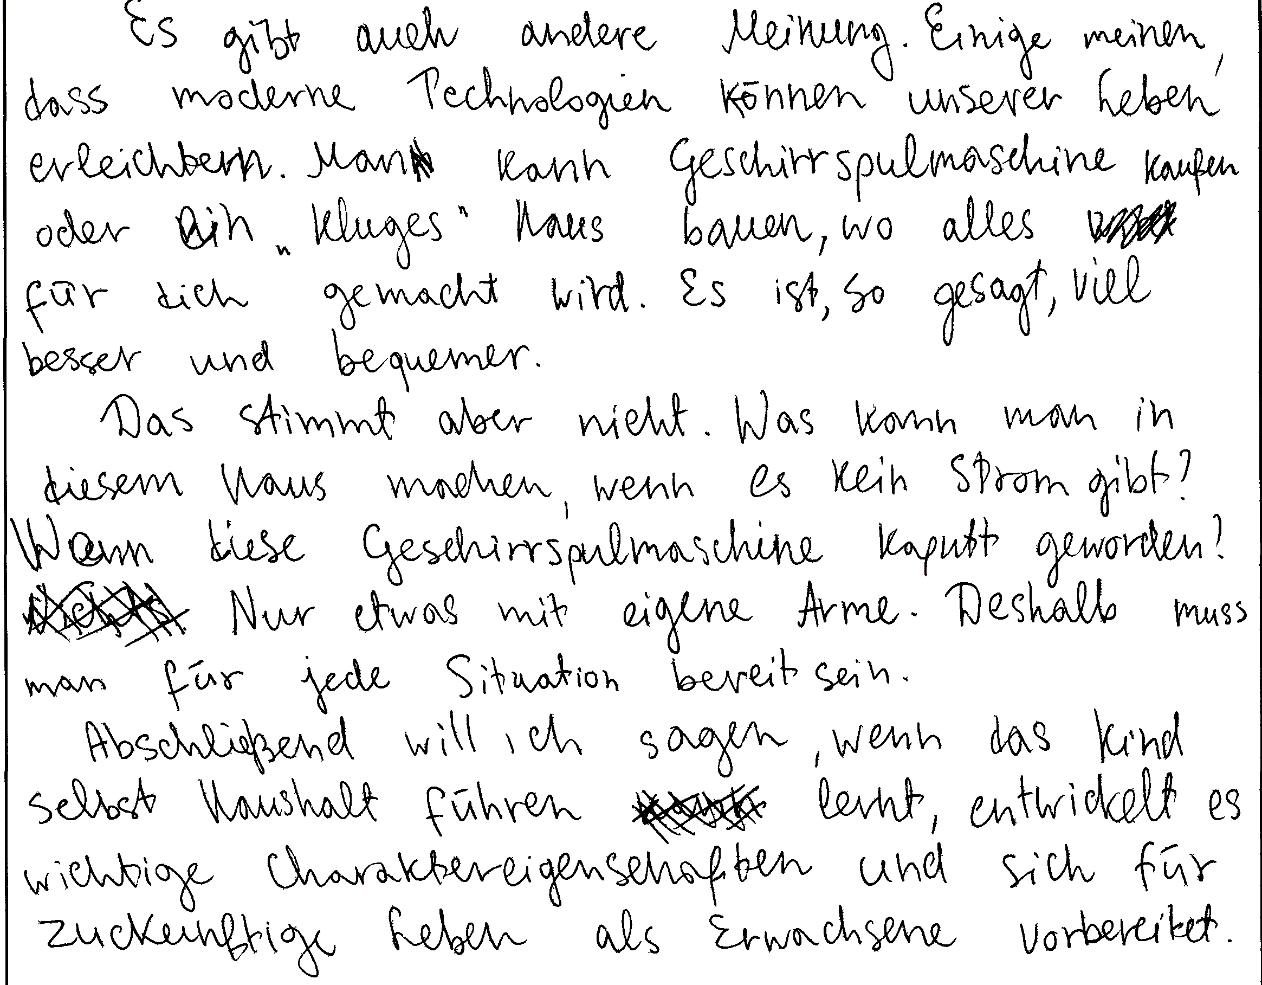 Es gibt auch andere Meinung. Einige meinen,
dass moderne Technologien können unserer Leben
erleichtern. Man kann Geschirrspulmaschine kaufen
oder ein „kluges" Haus bauen, wo alles
für dich gemacht wird. Es ist, so gesagt, viell
besser und bequemer.
Das stimmt aber nicht. Was kann man in
diesem Haus machen, wenn es kein Strom gibt?
Wenn diese Geschirrspulmaschine kaputt geworden?
Nur etwas mit eigene Arme. Deshalb muss
man für jede Situation bereit sein.
Abschließend will ich sagen, wenn das Kind
selbst Haushalt führen lernt, entwickelt es
wichtige Charaktereigenschaften und sich für
zuckunftige Leben als Erwachsene vorbereitet.